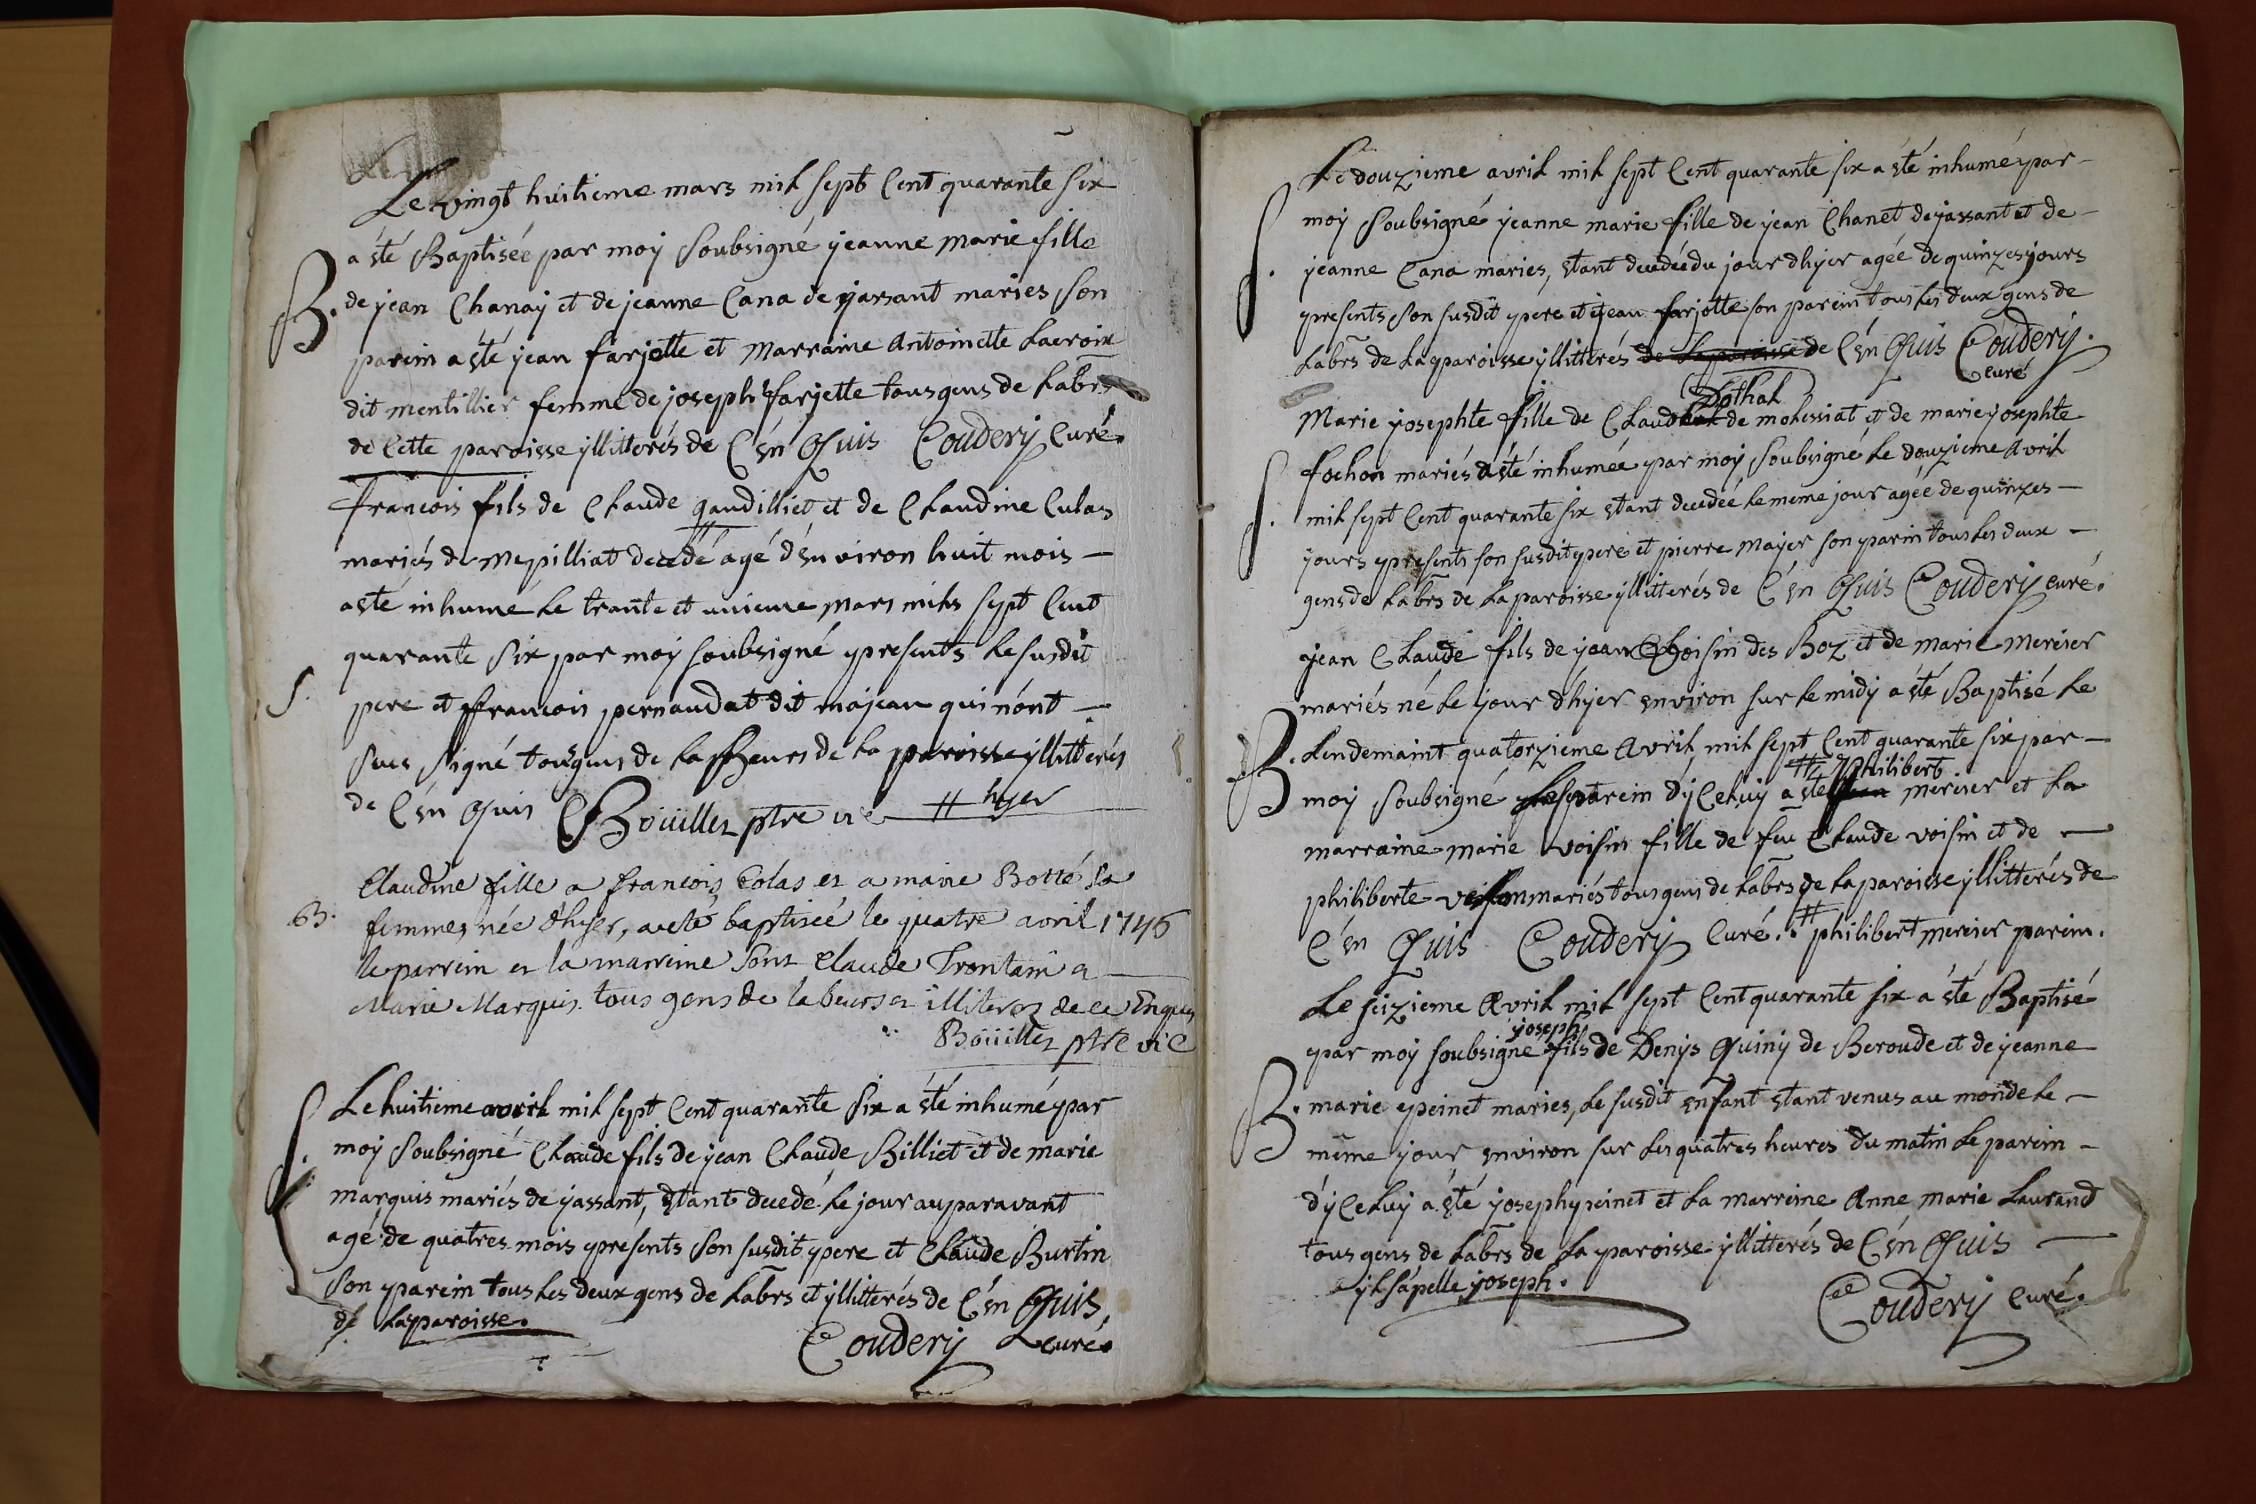 Le vingt huitieme mars mil sept Cent quarante six
a été Baptisée par moy Soubsigné jeanne marie fille
B. de jean Chanay et de jeanne Cana de jassant maries son
parein a été jean farjette et Marraine Antoinette Lacroix
dit mentillier femme de joseph farjette tous gens de labrs
de Cette paroisse yllitterés de C'én Quis Coudery Curé.
francois fils de Claude gaudilliet et de Claudine Culas
mariés de mepilliat decedé agé d'environ huit mois
a été inhumé le trante et unieme mars mils sept Cent
quarante six par moy soubsigné presents le susdit
S. pere et ffrancois pernaudat dit majean qui nónt
sceu signé tous gens de labheurs de la paroisse yllitterés
de C'én Quis Boüillez ptre vic # hyer
Claudine fille a francois Colas et a marie Botté sa
B. femme, née d'hyer, a eté baptiseé le quatre avril 1746
le parrein et la marreine sont Claude Trontain et
Marie Marquis. tous gens de labeurs et illiterez de ce Enquis
Boüillez ptre vic
Le huitieme avril mil sept Cent quarante six a été inhumé par
S. moy Soubsigné Claude fils de jean Claude Billiet et de marie
marquis mariés de jassant, étant decedé le jour auparavant
agé de quatres mois presents son susdit pere et Claude Burtin
son parein tous les deux gens de labrs et yllitterés de C'én Quis,
de la paroisse. Coudery Curé.
Le douzieme avril mil sept Cent quarante six a été inhumé par
moy Soubsigné jeanne marie fille de jean Chanet de jassant et de
S. jeanne Cana maries, étant decedée du jour dhyer agée de quinzes jours
presents son susdit pere et jean farjotte son parein tous les deux gens de
labrs de la paroisse yllitterés de la paroisse de C'én Quis Coudery.
curé
Dothal
Marie josephte fille de Claude de molessiat et de marie josephte
fochon mariés a été inhumée par moy Soubsigné le douzieme Avril
S. mil sept Cent quarante six étant decedeé le meme jour agée de quinzes
jours presents son susdit pere et pierre mayer son parin tous les deux
gens de labrs de la paroisse yllitterés de C'én Quis Coudery curé.
jean Claude fils de jean Choisin des Boz et de marie mercier
mariés né le jour dhyer environ sur le midy a été Baptisé le
B. Lendemaint quatorzieme Avril mil sept Cent quarante six par
# philibert
moy Soubsigné le parein d'yCeluy a été mercier et la
marraine marie voisin fille de feu Claude voisin et de
philiberte mariés tous gens de labrs de la paroisse yllitterés de
C'én Quis Coudery Curé. # philibert mercier parein.
Le seizieme Avril mil sept Cent quarante six a été Baptisé
joseph
par moy soubsigné fils de Denys Quiny de Beroude et de jeanne
B. marie peinet maries, le susdit enfant étant venus au monde le
même jour environ sur les quatres heures du matin le parein
d'yCeluy a été joseph peinet et la marreine Anne marie Laurand
tous gens de labrs de la paroisse yllitterés de C'én Quis
yl s'apelle joseph. Coudery Curé.